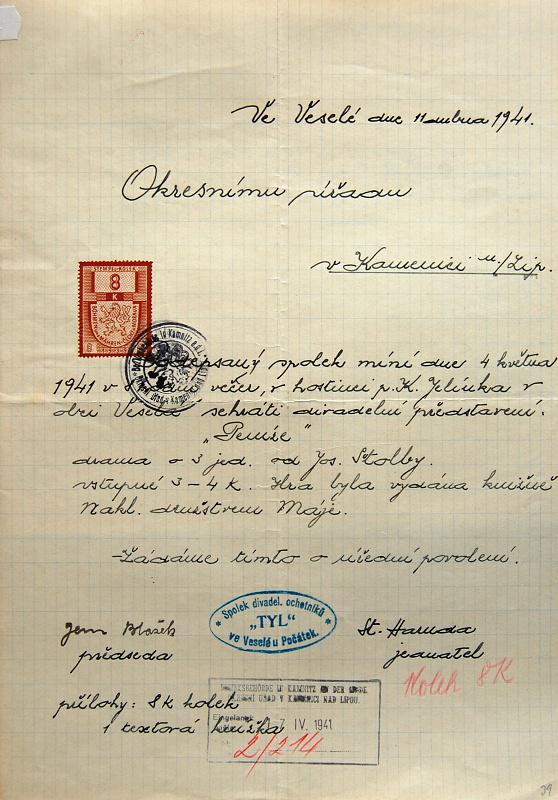 Ve Veselé dne 11 dubna 1941.
Okresnímu úřadu
v Kamenici n./Lip.
STEMPEL-KOLEK
8
K
BÖHMEN UND MÄHREN
Podepsaný spolek míní dne 4 května
1941 v večer, v hostinci p. K. Jelínka v
obci Veselé sehráti divadelní představení.
„Peníze"
drama o 3 jed. od Jos. Štolby.
vstupné 3-4 K. Hra byla vydána knižně
Nakl. družstvem Máje.
Žádáme tímto o úřední povolení.
* Spolek divadel. ochotníků *
„TYL"
ve Veselé u Počátek.
Jan Blažek
předseda
St. Haruda
jednatel
Kolek 8K
přílohy: 8 K kolek
1 textová knížka
BEZIRKSBEHÖRDE IN KAMNITZ AN DER LINDE
OKRESNÍ ÚŘAD V KAMENICI NAD LIPOU.
Eingelangt
17 IV. 1941
2/214
39